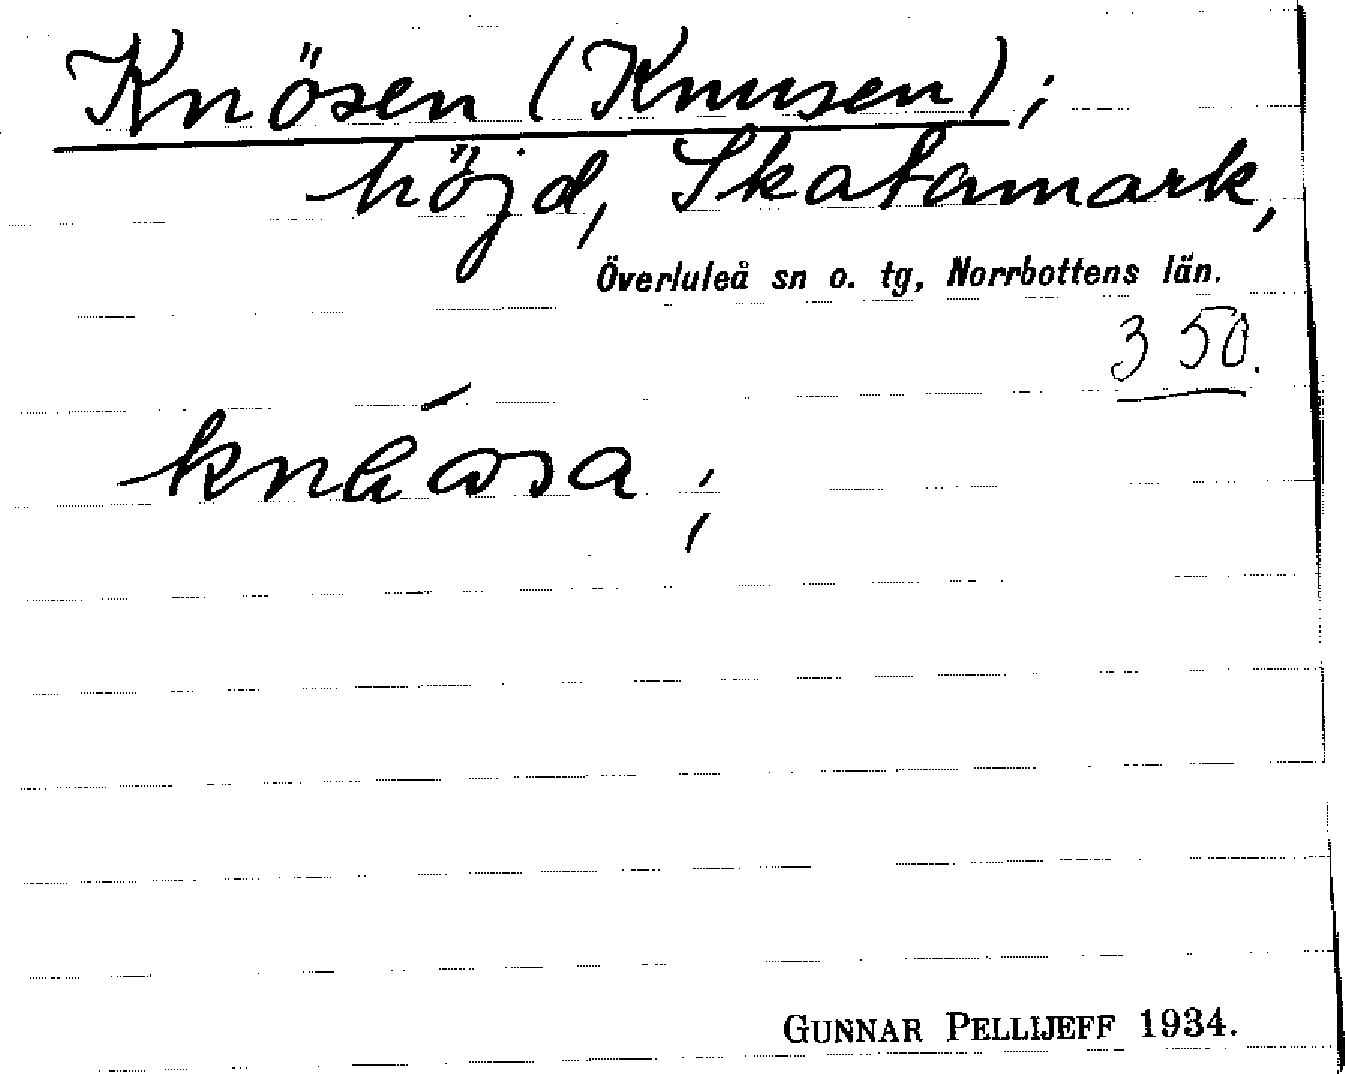 Knösen (Knusen);
höjd, Skatamark,
Överluleå sn o. tg, Norrbottens län.
350.
GUNNAR PELLIJEFF 1934.